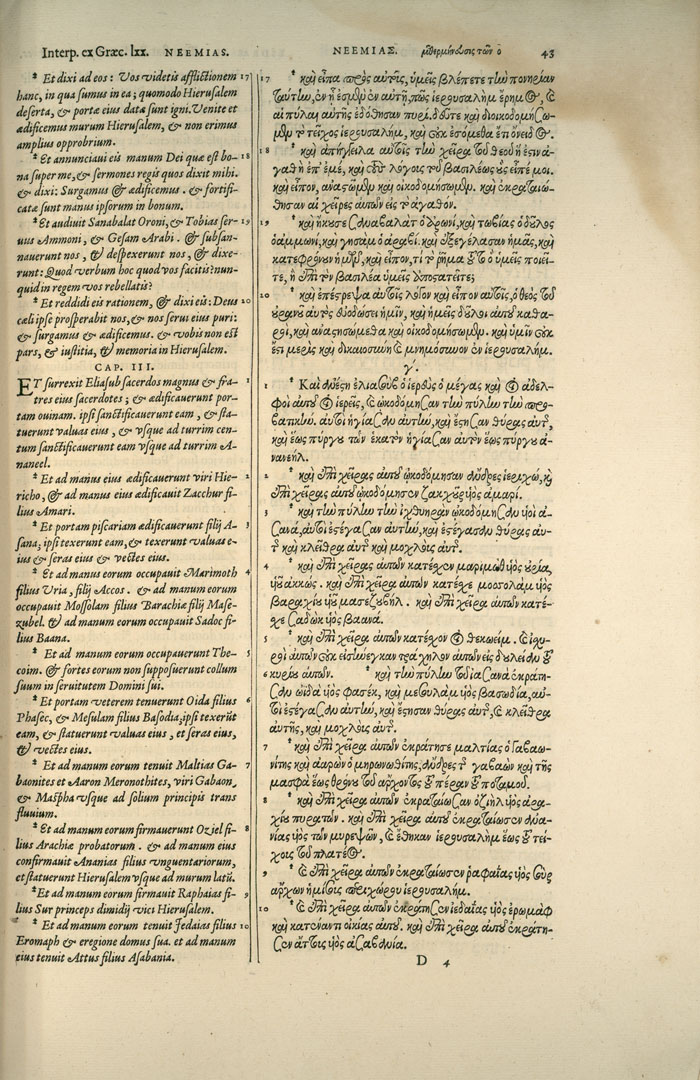 Interp. ex Græc. lxx. NEEMIAS.
* Et dixi ad eos: Vos videtis afflictionem 17
hanc, in qua sumus in ea; quomodo Hierusalem
deserta, & portæ eius datæ sunt igni. Venite et
ædificemus murum Hierusalem, & non erimus
amplius opprobrium.
* Et annunciaui eis manum Dei quæ est bo- 18
na super me, & sermones regis quos dixit mihi.
& dixi: Surgamus & ædificemus. & fortifi-
catæ sunt manus ipsorum in bonum.
* Et audiuit Sanabalat Oroni, & Tobias ser- 19
uus Ammoni, & Gesam Arabi. & subsan-
nauerunt nos, & despexerunt nos, & dixe-
runt: Quod verbum hoc quod vos facitis? nun-
quid in regem vos rebellatis?
* Et reddidi eis rationem, & dixi eis: Deus 20
cæli ipse prosperabit nos, & nos serui eius puri:
& surgamus & ædificemus. & vobis non est
pars, & iustitia, & memoria in Hierusalem.
CAP. III.
ET surrexit Eliasub sacerdos magnus & fra- 1
tres eius sacerdotes; & ædificauerunt por-
tam ouinam. ipsi sanctificauerunt eam, & sta-
tuerunt valuas eius, & vsque ad turrim cen-
tum sanctificauerunt eam vsque ad turrim A-
naneel.
* Et ad manus eius ædificauerunt viri Hie- 2
richo, & ad manus eius ædificauit Zacchur fi-
lius Amari.
* Et portam piscariam ædificauerunt filij A- 3
sana; ipsi texerunt eam, & texerunt valuas e-
ius & seras eius & vectes eius.
* Et ad manus eorum occupauit Marimoth 4
filius Vria, filij Accos. & ad manum eorum
occupauit Mossolam filius Barachiæ filij Mase-
zubel. & ad manum eorum occupauit Sadoc fi-
lius Baana.
* Et ad manum eorum occupauerunt The- 5
coim. & fortes eorum non supposuerunt collum
suum in seruitutem Domini sui.
* Et portam veterem tenuerunt Oida filius 6
Phasec, & Mesulam filius Basodia; ipsi texerūt
eam, & statuerunt valuas eius, et seras eius,
& vectes eius.
* Et ad manum eorum tenuit Maltias Ga- 7
baonites et Aaron Meronothites, viri Gabaon,
& Maspha vsque ad solium principis trans
fluuium.
* Et ad manum eorum firmauerunt Oziel fi- 8
lius Arachiæ probatorum. & ad manum eius
confirmauit Ananias filius vnguentariorum,
et statuerunt Hierusalem vsque ad murum latū.
* Et ad manum eorum firmauit Raphaias fi- 9
lius Sur princeps dimidij vici Hierusalem.
* Et ad manum eorum tenuit Jedaias filius 10
Eromaph & eregione domus suæ. et ad manum
eius tenuit Attus filius Asabania.
ΝΕΕΜΙΑΣ. μεθερμίνευσις τῶν ο 43
17 * καὶ εἶπα πρὸς αὐτοὺς, ὑμεῖς βλέπετε τὴν πονηρίαν
ταύτην, ἐν ᾗ ἐσμὲν ἐν αὐτῇ, πῶς ἱερουσαλὴμ ἔρημος, καὶ
αἱ πύλαι αὐτῆς ἐδόθησαν πυρί. δεῦτε καὶ διοικοδομήσω-
μεν τὸ τεῖχος ἱερουσαλὴμ, καὶ οὐκ ἐσόμεθα ἔτι ὄνειδος.
18 * καὶ ἀπήγγειλα αὐτοῖς τὴν χεῖρα τοῦ θεοῦ ἥ ἐστιν ἀ-
γαθὴ ἐπ' ἐμὲ, καὶ τοὺς λόγους τοῦ βασιλέως οὓς εἶπέ μοι.
καὶ εἶπον, ἀναστῶμεν καὶ οἰκοδομήσωμεν. καὶ ἐκραταιώ-
θησαν αἱ χεῖρες αὐτῶν εἰς τὸ ἀγαθόν.
19 * καὶ ἤκουσε σαναβαλὰτ ὁ ὀρωνὶ, καὶ τωβίας ὁ δοῦλος
ὁ ἀμμωνὶ, καὶ γησὰμ ὁ ἀραβί. καὶ ἐξεγέλασαν ἡμᾶς, καὶ
κατεφρόνουν ἡμῶν, καὶ εἶπον, τί τὸ ῥῆμα τοῦτο ὃ ὑμεῖς ποιεῖ-
τε, ἢ ἐπὶ τὸν βασιλέα ὑμεῖς ἀποστατεῖτε;
20 * καὶ ἐπέστρεψα αὐτοῖς λόγον καὶ εἶπον αὐτοῖς, ὁ θεὸς τοῦ
οὐρανοῦ αὐτὸς εὐοδώσει ἡμῖν, καὶ ἡμεῖς δοῦλοι αὐτοῦ καθα-
ροὶ, καὶ ἀναστησώμεθα καὶ οἰκοδομήσωμεν. καὶ ὑμῖν οὐκ
ἔστι μερὶς καὶ δικαιοσύνη καὶ μνημόσυνον ἐν ἱερουσαλήμ.
γ'.
1 * Καὶ ἀνέστη ἐλιασοὺβ ὁ ἱερεὺς ὁ μέγας καὶ οἱ ἀδελ-
φοὶ αὐτοῦ οἱ ἱερεῖς, καὶ ᾠκοδόμησαν τὴν πύλην τὴν προ-
βατικήν. αὐτοὶ ἡγίασαν αὐτὴν, καὶ ἔστησαν θύρας αὐτῆς,
καὶ ἕως πύργου τῶν ἑκατὸν ἡγίασαν αὐτὴν ἕως πύργου ἀ-
νανεήλ.
2 * καὶ ἐπὶ χεῖρας αὐτοῦ ᾠκοδόμησαν ἄνδρες ἱεριχὼ, καὶ
ἐπὶ χεῖρας αὐτοῦ ᾠκοδόμησεν ζακχοὺρ υἱὸς ἀμαρί.
3 * καὶ τὴν πύλην τὴν ἰχθυηρὰν ᾠκοδόμησαν υἱοὶ ἀ-
σανά, αὐτοὶ ἐστέγασαν αὐτὴν, καὶ ἐστέγασαν θύρας αὐ-
τῆς καὶ κλεῖθρα αὐτῆς καὶ μοχλοὺς αὐτῆς.
4 * καὶ ἐπὶ χεῖρας αὐτῶν κατέσχεν μαριμὼθ υἱὸς οὐρία,
υἱοῦ ἀκκώς. καὶ ἐπὶ χεῖρα αὐτῶν κατέσχε μοσολὰμ υἱὸς
βαραχίου υἱοῦ μασεζουβήλ. καὶ ἐπὶ χεῖρα αὐτῶν κατέ-
σχε σαδὼκ υἱὸς βαανά.
5 * καὶ ἐπὶ χεῖρα αὐτῶν κατέσχον οἱ θεκωείμ. καὶ ἰσχυ-
ροὶ αὐτῶν οὐκ εἰσήνεγκαν τράχηλον αὐτῶν εἰς δουλείαν τοῦ
6 κυρίου αὐτῶν. * καὶ τὴν πύλην τοῦ ἰασανὰ ἐκράτη-
σαν ὠϊδὰ υἱὸς φασὲκ, καὶ μεσουλὰμ υἱὸς βασωδία, αὐ-
τοὶ ἐστέγασαν αὐτὴν, καὶ ἔστησαν θύρας αὐτῆς, καὶ κλεῖθρα
αὐτῆς, καὶ μοχλοὺς αὐτῆς.
7 * καὶ ἐπὶ χεῖρα αὐτῶν ἐκράτησε μαλτίας ὁ γαβαω-
νίτης καὶ ἀαρὼν ὁ μηρωνωθίτης, ἄνδρες τῆς γαβαὼν καὶ τῆς
μασφὰ ἕως θρόνου τοῦ ἄρχοντος τοῦ πέραν τοῦ ποταμοῦ.
8 * καὶ ἐπὶ χεῖρα αὐτῶν ἐκραταίωσαν ὀζιὴλ υἱὸς ἀρα-
χίου πυρωτῶν. καὶ ἐπὶ χεῖρα αὐτοῦ ἐκραταίωσεν ἀνα-
νίας υἱὸς τῶν μυρεψῶν, καὶ ἔθηκαν ἱερουσαλὴμ ἕως τοῦ τεί-
χους τοῦ πλατέος.
9 * καὶ ἐπὶ χεῖρα αὐτῶν ἐκραταίωσεν ῥαφαΐας υἱὸς σοὺρ
ἄρχων ἡμίσους περιχώρου ἱερουσαλήμ.
10 * καὶ ἐπὶ χεῖρα αὐτῶν ἐκράτησεν ἰεδαΐας υἱὸς ἐρωμὰφ
καὶ κατέναντι οἰκίας αὐτοῦ. καὶ ἐπὶ χεῖρα αὐτοῦ ἐκράτη-
σεν ἀττοὺς υἱὸς ἀσαβανία.
D 4